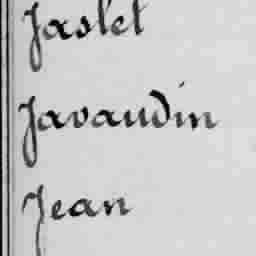 Jaslet
Javaudin
Jean